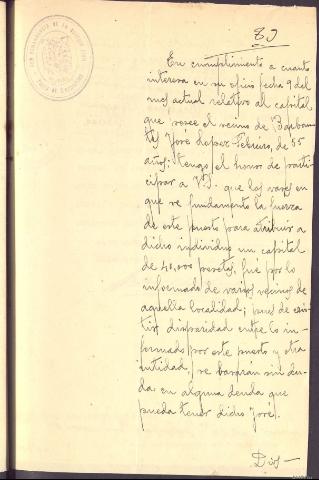 En cumplimiento a cuanto
interesa en su oficio fecha 9 del
mes actual relativo al capital
que posee el vecino de
José Lopez Febrero, de 55
años; tengo el honor de parti-
cipar a V.S. que las razones en
que se fundamento la fuerza
de este puesto para atribuir a
dicho individuo un capital
de 40,000 pesetas, fue por lo
informado de varios vecinos de
aquella localidad; pues de exis-
tir disparidad entre lo in-
formado por este puesto y otra
entidad, se basaran sin du-
da en alguna deuda que
pueda tener dicho José.
Dios